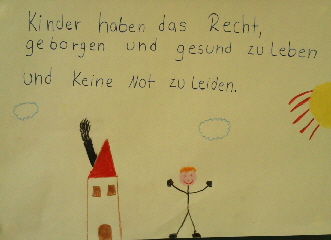 Kinder haben das Recht,
geborgen und gesund zu Leben
und Keine Not zu Leiden.